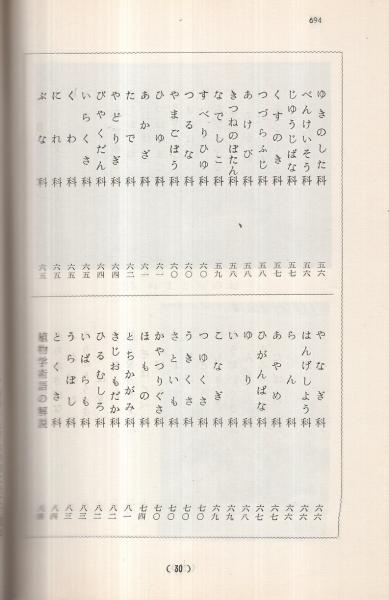 694
ゆきのした科 五六
べんけいそう科 五六
じゆうじばな科 五七
くすのき科 五七
つづらふじ科 五八
あけび科 五八
きつねのぼたん科 五八
なでしこ科 五九
すべりひゆ科 六〇
つるな科 六〇
やまごぼう科 六〇
ひゆ科 六一
あかざ科 六一
たで科 六二
やどりぎ科 六四
びやくだん科 六四
いらくさ科 六五
くわ科 六五
にれ科 六五
ぶな科 六五
やなぎ科 六六
はんげしよう科 六六
らん科 六六
あやめ科 六七
ひがんばな科 六七
ゆり科 六八
い科 六九
こなぎ科 六九
つゆくさ科 七〇
うきくさ科 七〇
さといも科 七〇
かやつりぐさ科 七〇
ほもの科 七四
とちかがみ科 八一
さじおもだか科 八二
ひるむしろ科 八二
いばらも科 八三
うらぼし科 八三
とくさ科 八四
植物学術語の解説
(30)